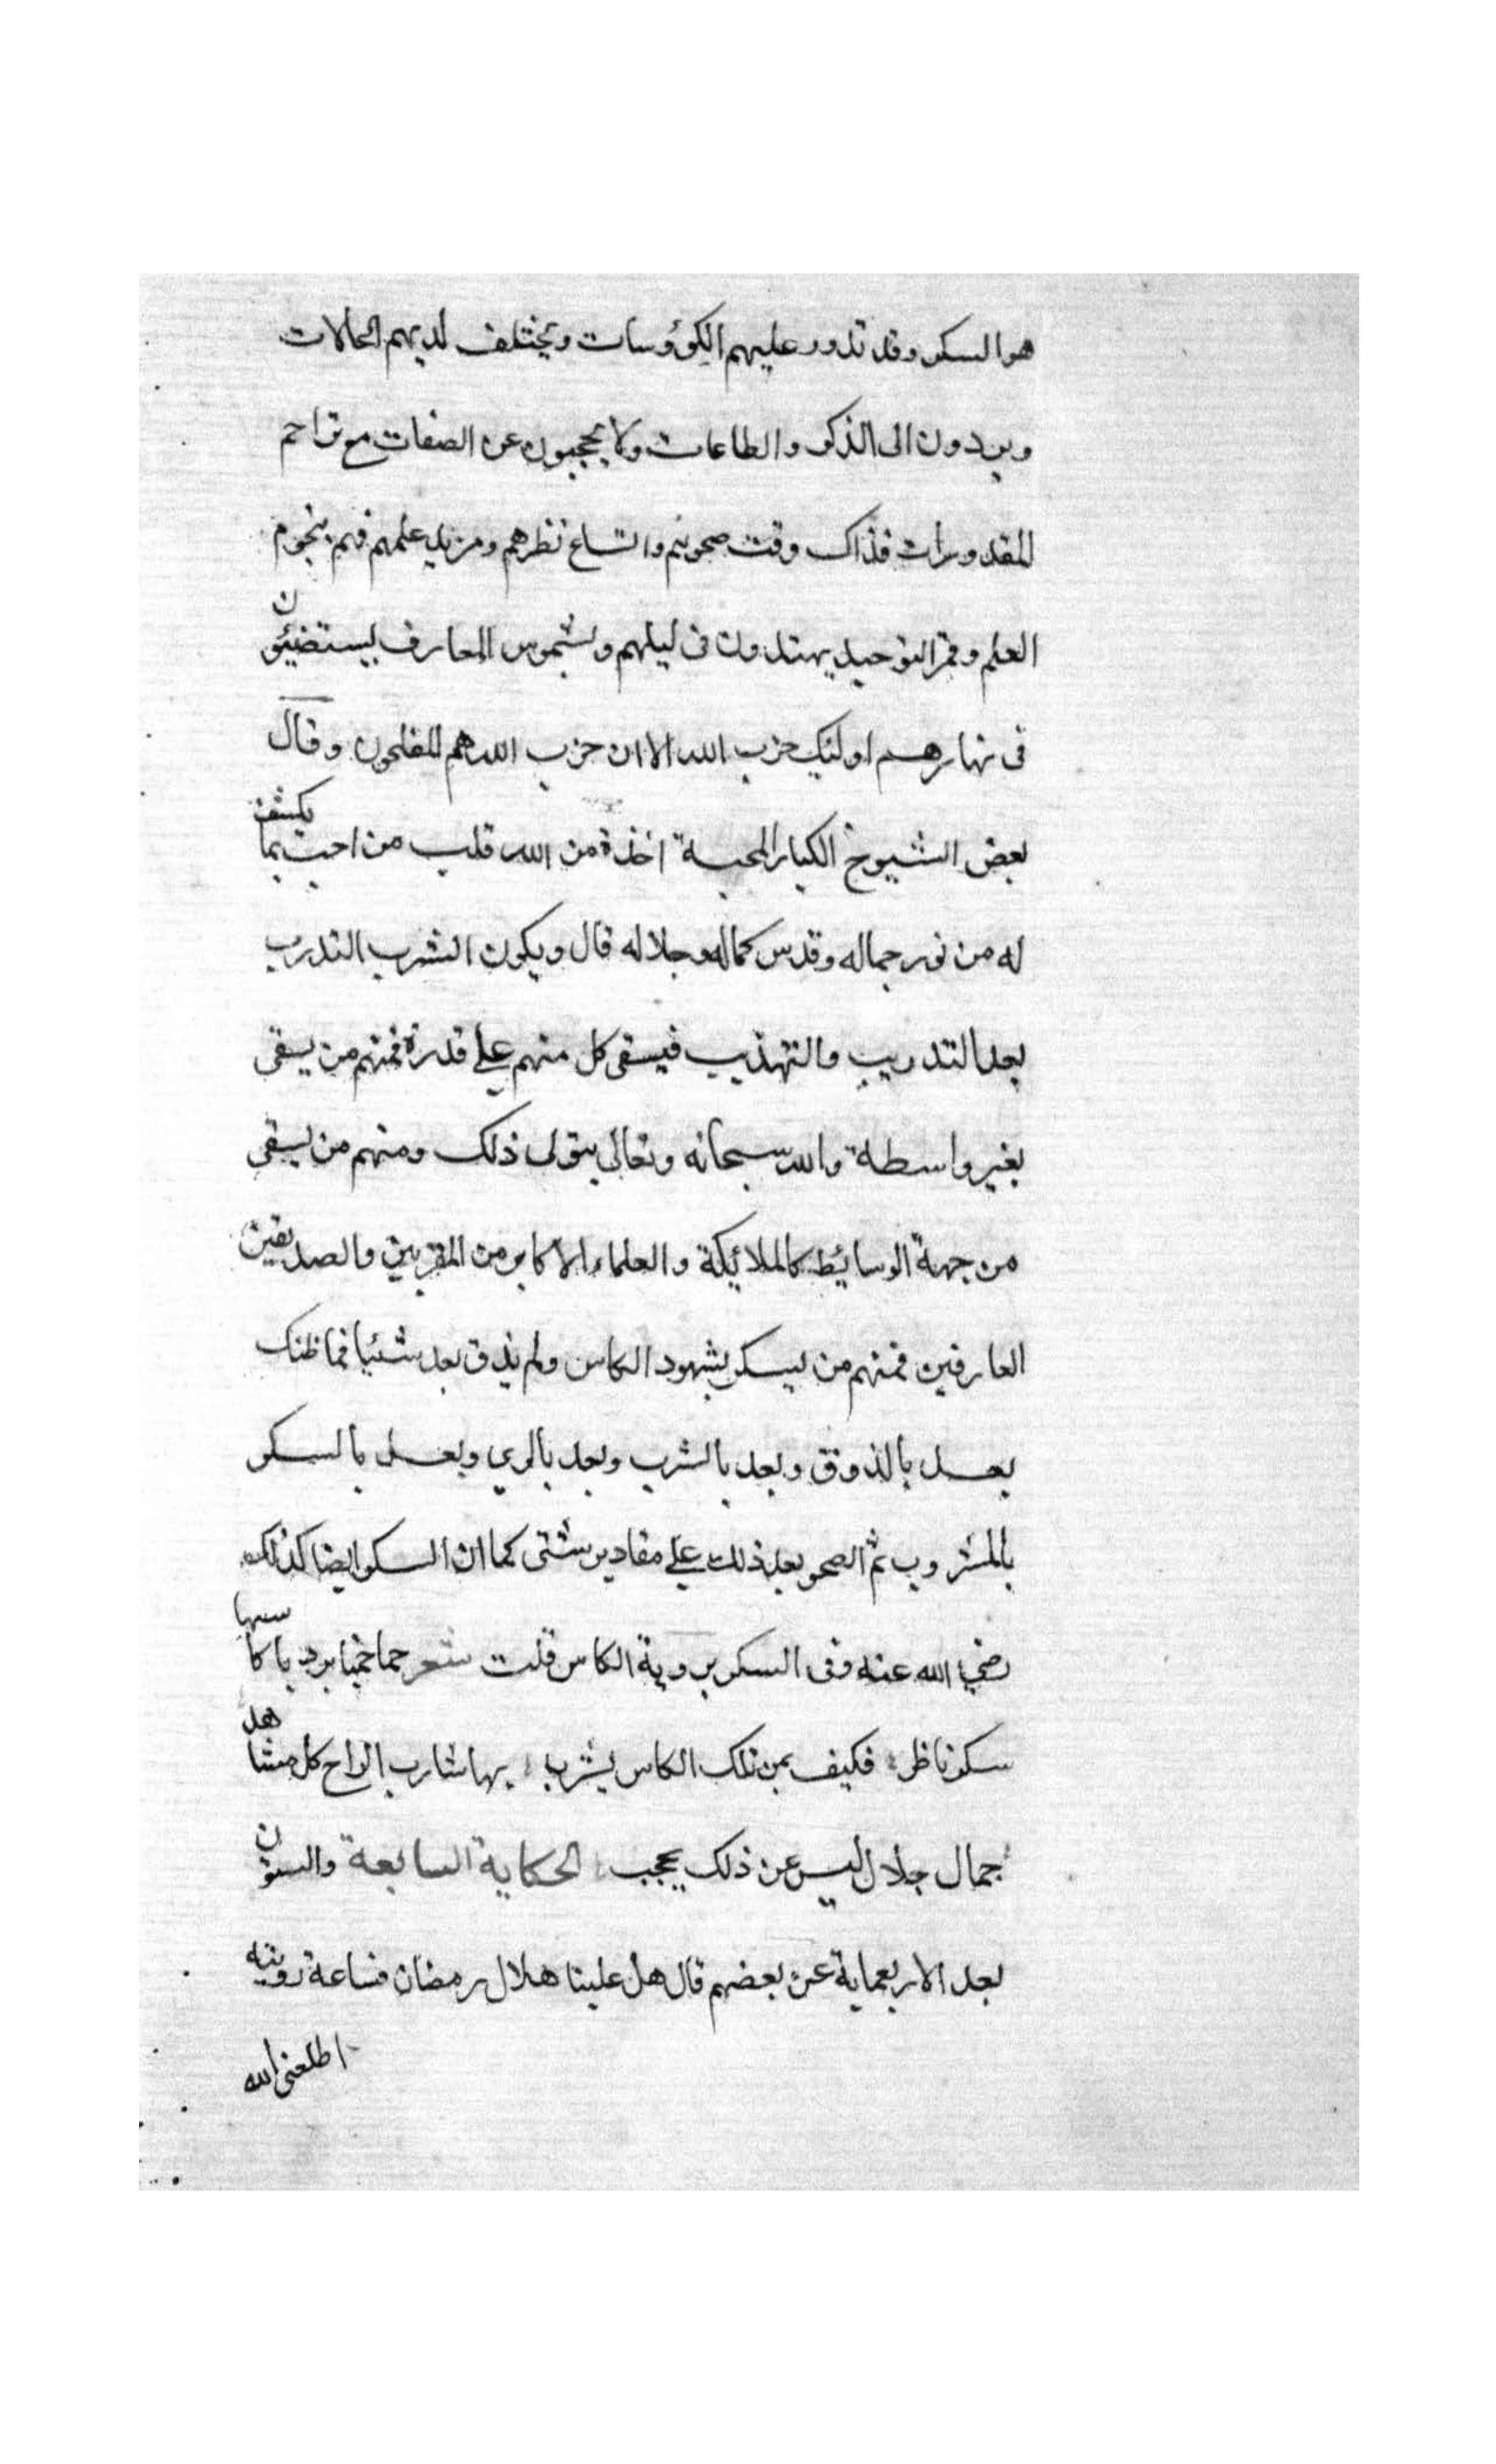 هو السكر وقد تدور عليهم الكؤوسات ويختلف لديهم الحالات
ويردون الى الذكر والطاعات ولا يحجبون عن الصفات مع تزاحم
المقدورات فذاك وقت صحوهم واتساع نظرهم ومزيد علمهم فهم بنجوم
العلم وقمر التوحيد يهتدون فى ليلهم وبشموس المعارف يستضيئون
فى نهارهم اولئيك حزب الله الا ان حزب الله هم المفلحون وقال
بعض الشيوخ الكبار المحبة اخذة من الله قلب من احب بما يكشف
له من نور جماله وقدس كماله وجلاله قال ويكون الشرب التدرب
بعد التدريب والتهذيب فيسقى كل منهم على قدرة فمنهم من يسقى
بغير واسطة والله سبحانه وتعالى يتولى ذلك ومنهم من يسقى
من جهة الوسائيط كالملائيكة والعلماء الاكابر من المقربين والصديقين
العارفين فمنهم من يسكر بشهود الكاس ولم يذق بعد شئيا فما ظنك
بعد بالذوق وبعد بالشرب وبعد بالري وبعد بالسكر
بالمشروب ثم الصحو بعد ذلك على مقادير شتى كما ان السكر ايضا كذلك
رضي الله عنه وفى السكر بروية الكاس قلت شعر حما حميا يرد يا كاسها
سكر ناظر فكيف بمن تلك الكاس يشرب بها شارب الراح كل مشاهد
جمال جلال ليس عن ذلك يحجب الحكاية السابعة والستون
بعد الاربعماية عن بعضهم قال هل علينا هلال رمضان فساعة رويته
اطلعنى الله